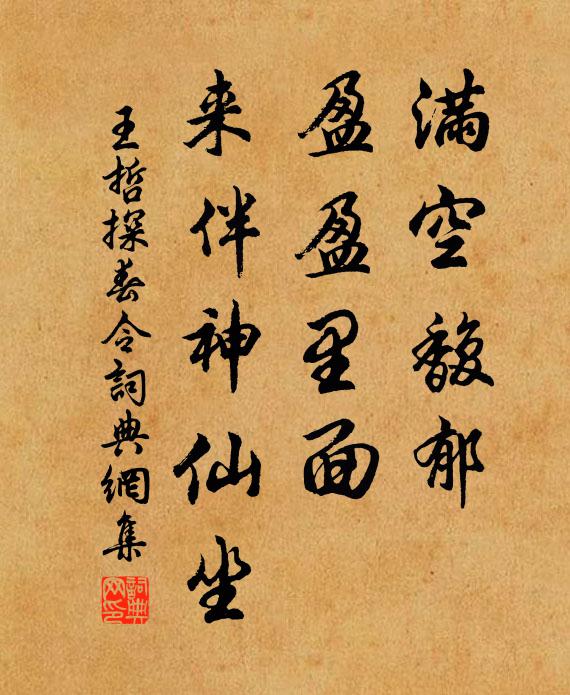 满空馥郁
盈盈里面
来伴神仙坐
王哲探春令詞典網集
詞典网印